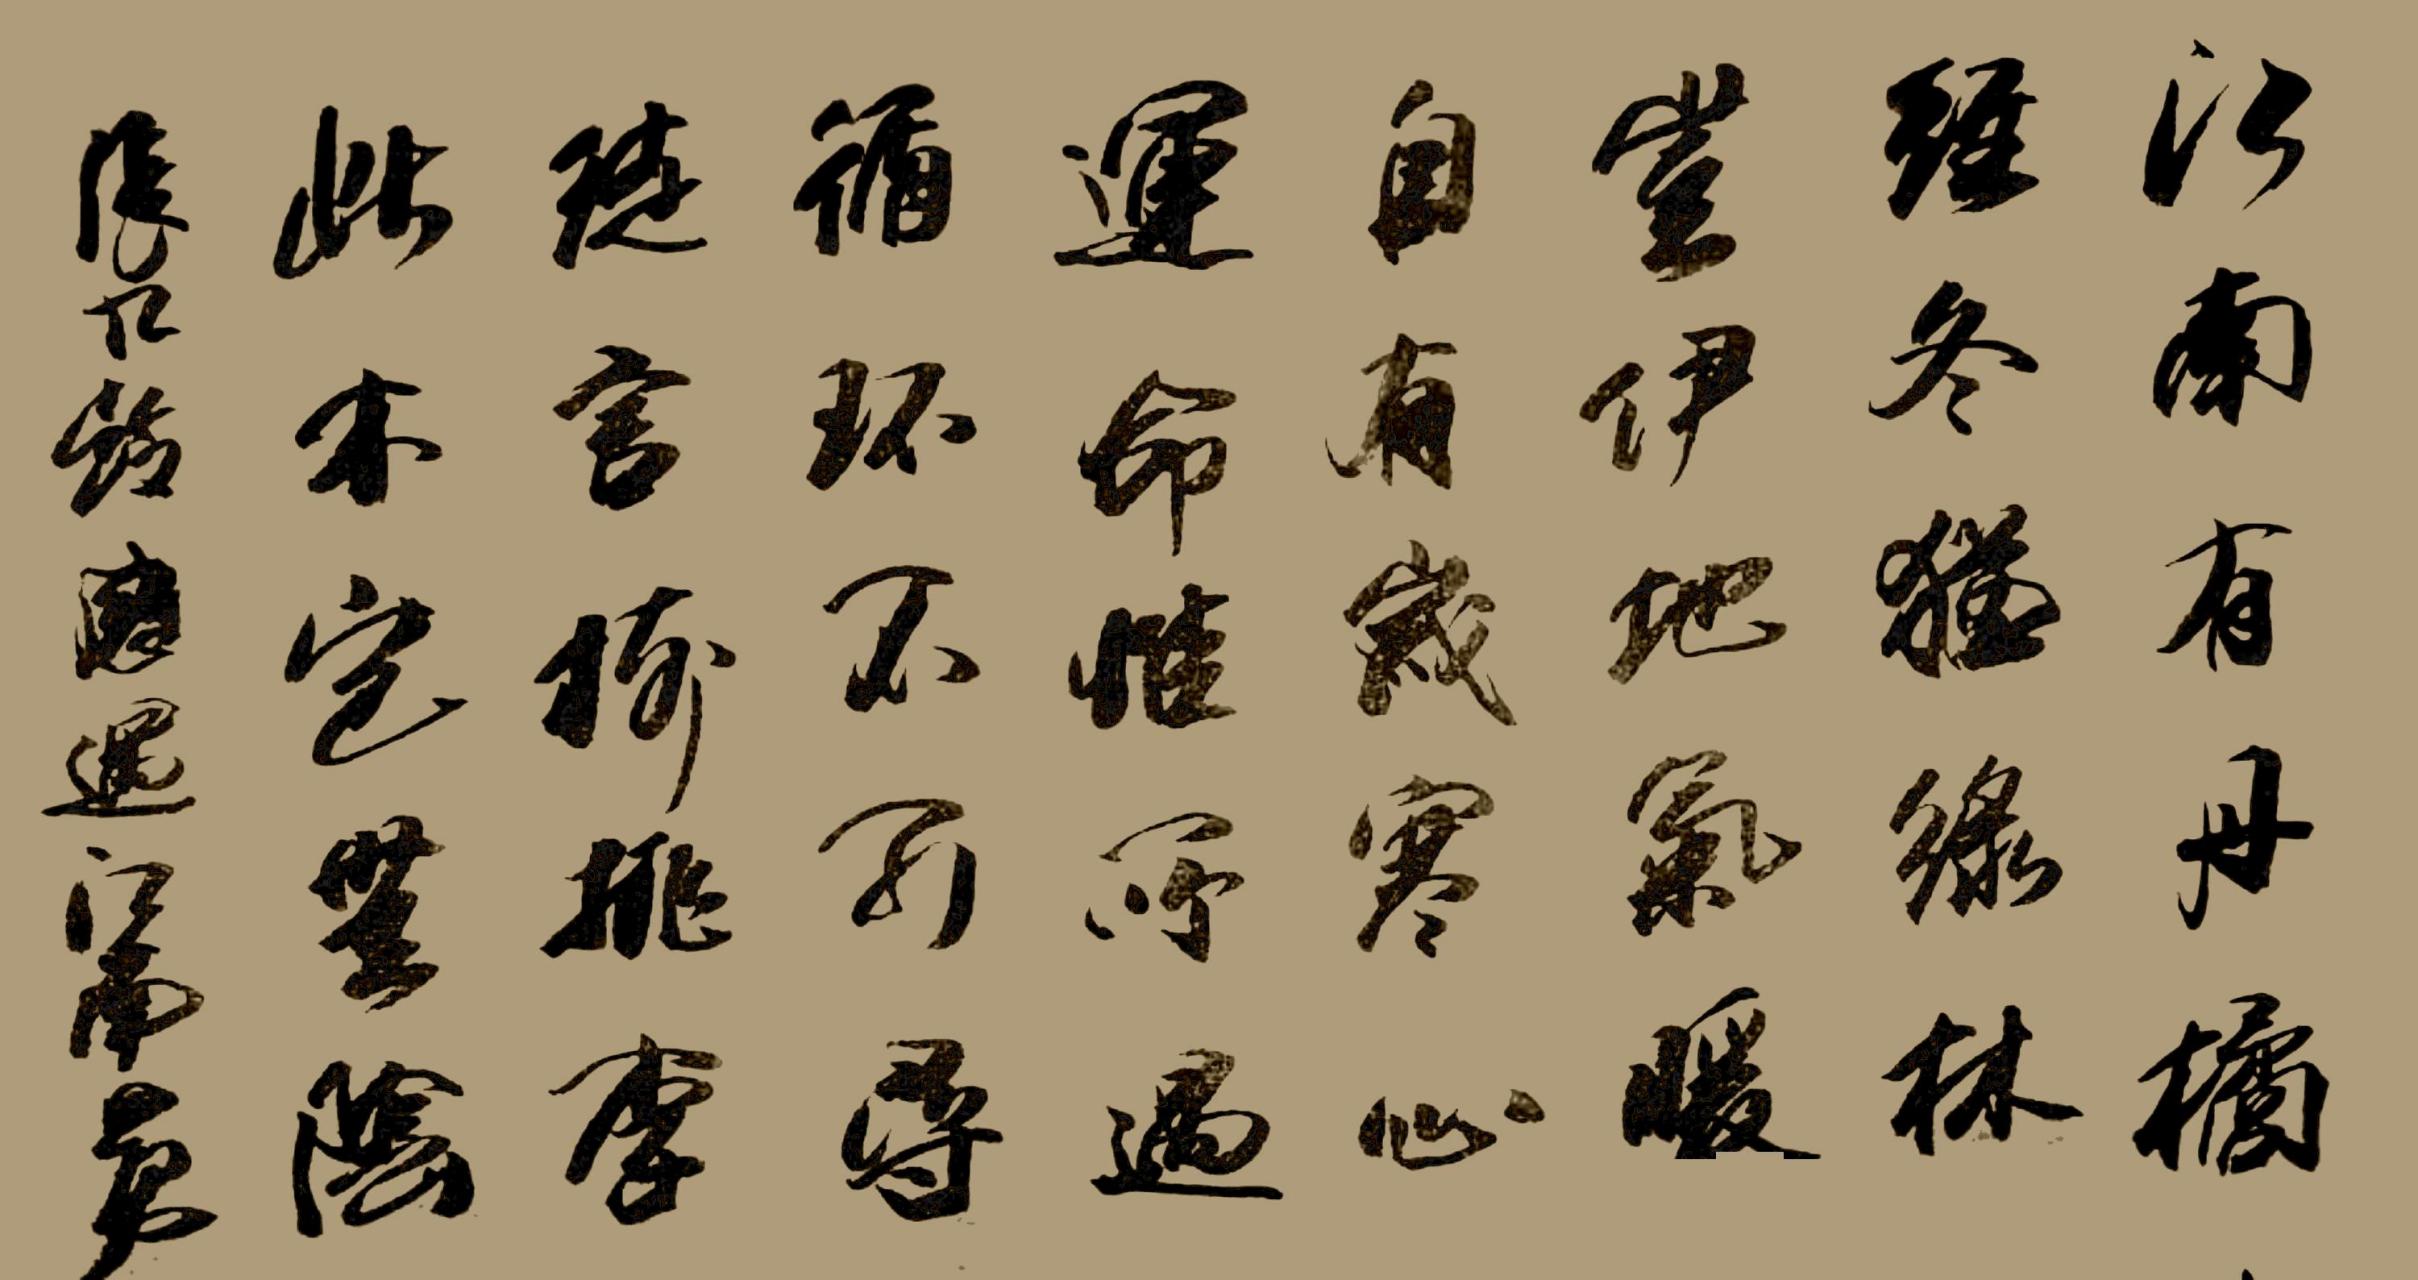 江南有丹橘
經冬猶綠林
豈伊地氣暖
自有歲寒心
運命惟所遇
循环不可尋
徒言樹桃李
此木岂無陰
張九齡感遇江南